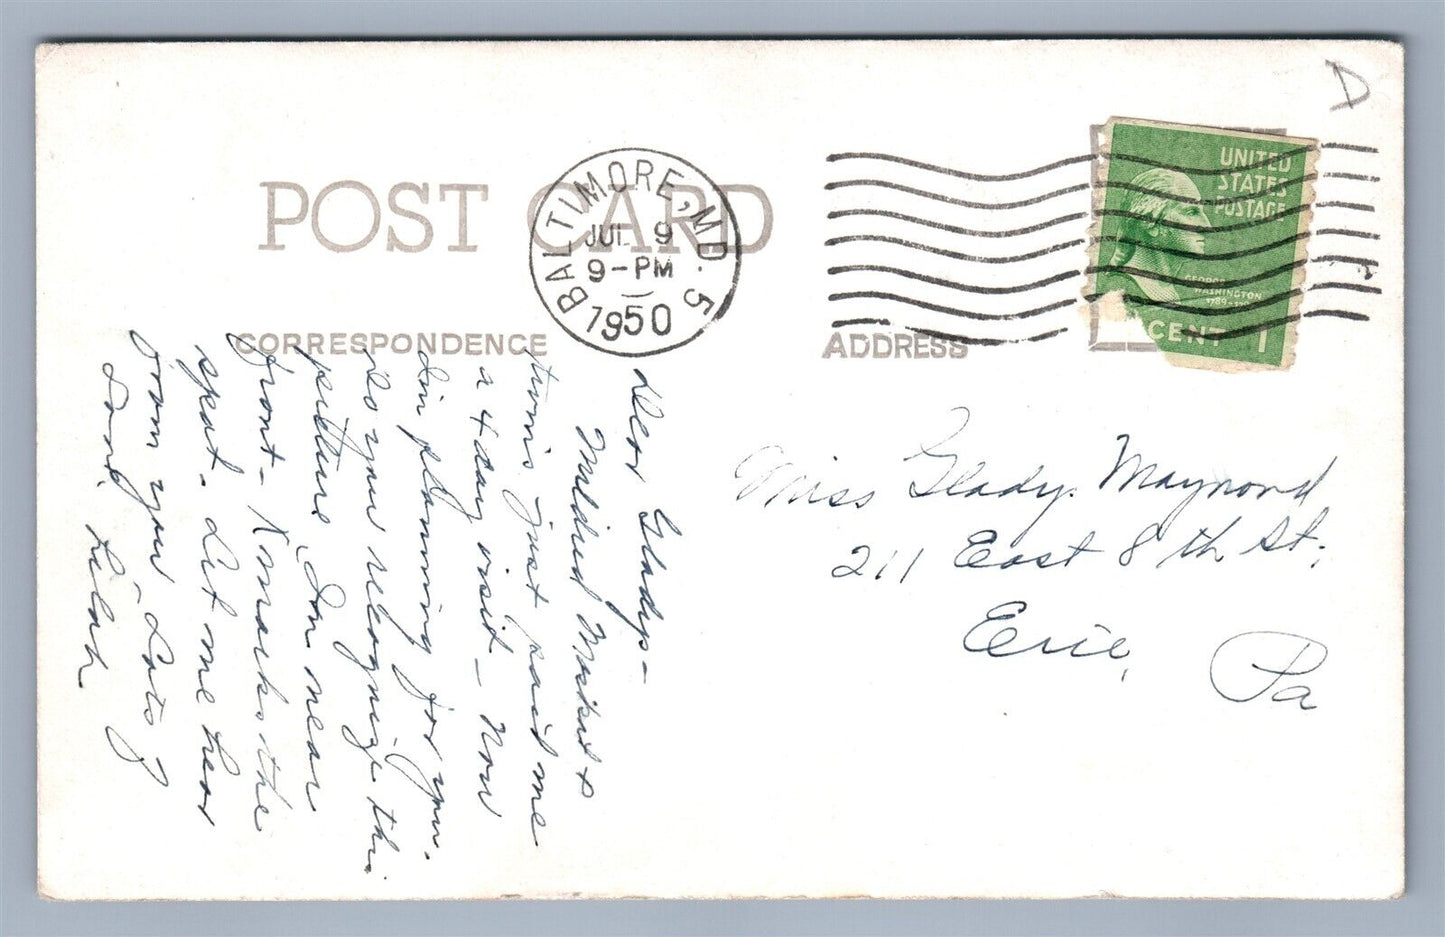 D
POST CARD
BALTIMORE, MD. 5
JUL 9
9-PM
1950
UNITED
STATES
POSTAGE
GEORGE
WASHINGTON
1789-17
CENT 1
CORRESPONDENCE
ADDRESS
Dear Gladys-
Mildred &
twins just paid me
a 4 day visit - Now
I'm planning for you.
Do you recognize this
picture, I'm near
front - X marks the
spot. Let me hear
from you Lots of
Love,
Lilah
Miss Gladys Maynord
211 East 8th St.
Erie, Pa